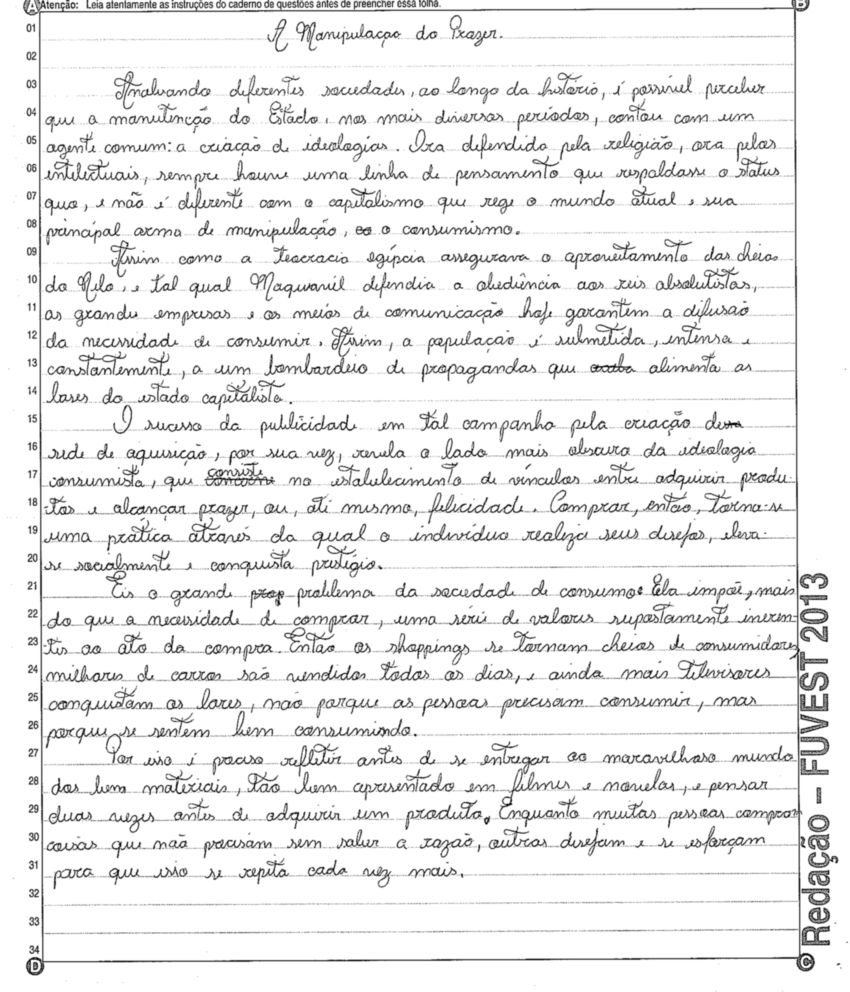 Atenção: Leia atentamente as instruções do caderno de questões antes de preencher essa folha.
A Manipulação do Prazer.
Analisando diferentes sociedades, ao longo da história, é possível perceber
que a manutenção do Estado, nos mais diversos períodos, contou com um
agente comum: a criação de ideologias. Ora defendido pela religião, ora pelos
intelectuais, sempre houve uma linha de pensamento que respaldasse o status
quo, e não é diferente com o capitalismo que rege o mundo atual e sua
principal arma de manipulação, o consumismo.
Assim como a teocracia egípcia assegurava o aproveitamento das cheias
do Nilo, e tal qual Maquiavél defendia a obediência aos reis absolutistas,
as grandes empresas e os meios de comunicação hoje garantem a difusão
da necessidade de consumir. Assim, a população é submetida, intensa e
constantemente, a um bombardeio de propagandas que alimenta as
bases do estado capitalista.
O sucesso da publicidade em tal campanha pela criação
sede de aquisição, por sua vez, revela o lado mais obscuro da ideologia
consumista, que consiste no estabelecimento de vínculos entre adquirir produ-
tos e alcançar prazer, ou, até mesmo, felicidade. Comprar, então, torna-se
uma prática através da qual o indivíduo realiza seus desejos, eleva-
se socialmente e conquista prestígio.
Eis o grande problema da sociedade de consumo: Ela impõe, mais
do que a necessidade de comprar, uma série de valores supostamente ineren-
tes ao ato da compra. Então os shoppings se tornam cheios de consumidores,
milhares de carros são vendidos todos os dias, e ainda mais televisores
conquistam os lares, não porque as pessoas precisam consumir, mas
porque se sentem bem consumindo.
Por isso é preciso refletir antes de se entregar ao maravilhoso mundo
dos bens materiais, tão bem apresentado em filmes e novelas, e pensar
duas vezes antes de adquirir um produto. Enquanto muitas pessoas compram
coisas que não precisam sem saber a razão, outras desejam e se esforçam
para que isso se repita cada vez mais.
Redação – FUVEST 2013